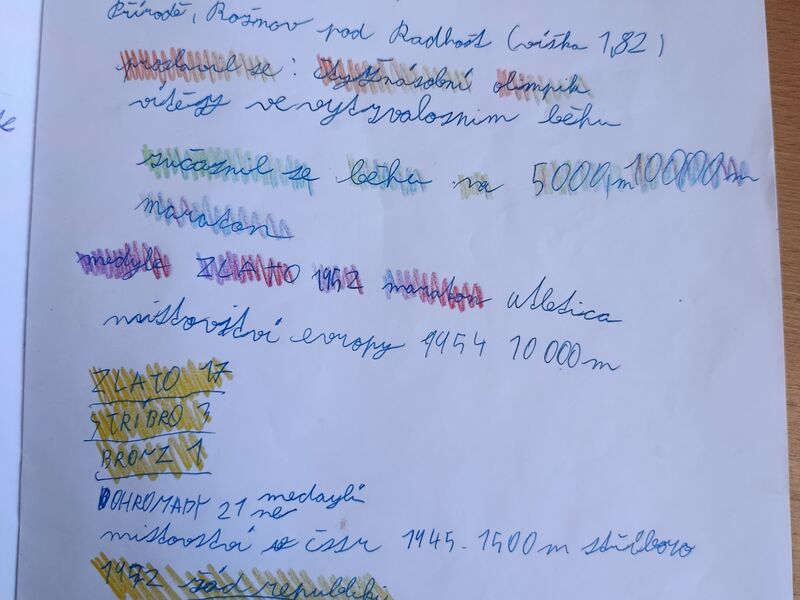 Přírodě, Rožnov pod Radhošt (výška 1,82)
proslavil se: čtyřnásobní olimpik
vítězz ve vytzvalosním běhu
zučasnil se běhu na 5000m 10000m
maraton
medyle ZLATO 1952 maraton atletica
mistovství evropy 1954 10 000m
ZLATO 17
STŘÍBRO 3
BRONZ 1
DOHROMADY 21 medaylí
ne
mistovství v čssr 1945-1500m stříboro
republiki